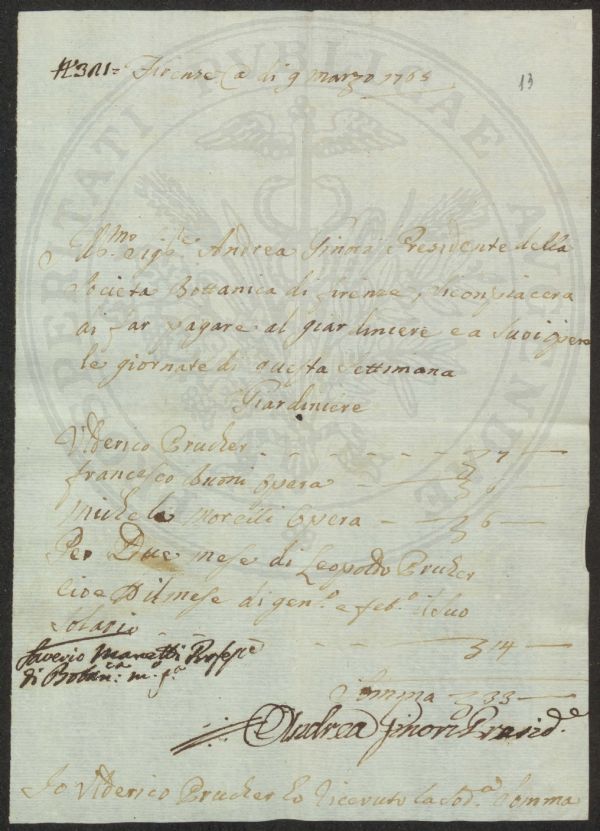 N° 321 = Firenze a di 9 Marzo 1765
13
Ill.mo Sig.re Andrea Ginori Presidente della
Società Bottanica di firenze, si compiacera
di far pagare al giardiniere e a suoi opere
le giornate di questa settimana
Giardiniere
Viderico Prucher - - - - - - 7 -
francesco buoni opera - 6 -
Michele morelli opera - - 6 -
Per Due mese di Leopoldo Prucher
cioè Il mese di gen.o e feb.o suo
solario - - 14 -
Saverio Manetti Profess.e
di Botan.ca m.o p.a
Somma 33 -
Andrea Ginori Presid.e
Io Viderico Prucher ho ricevuto la sod.a somma
PROSPERITATI PVBLICAE AVGENDAE